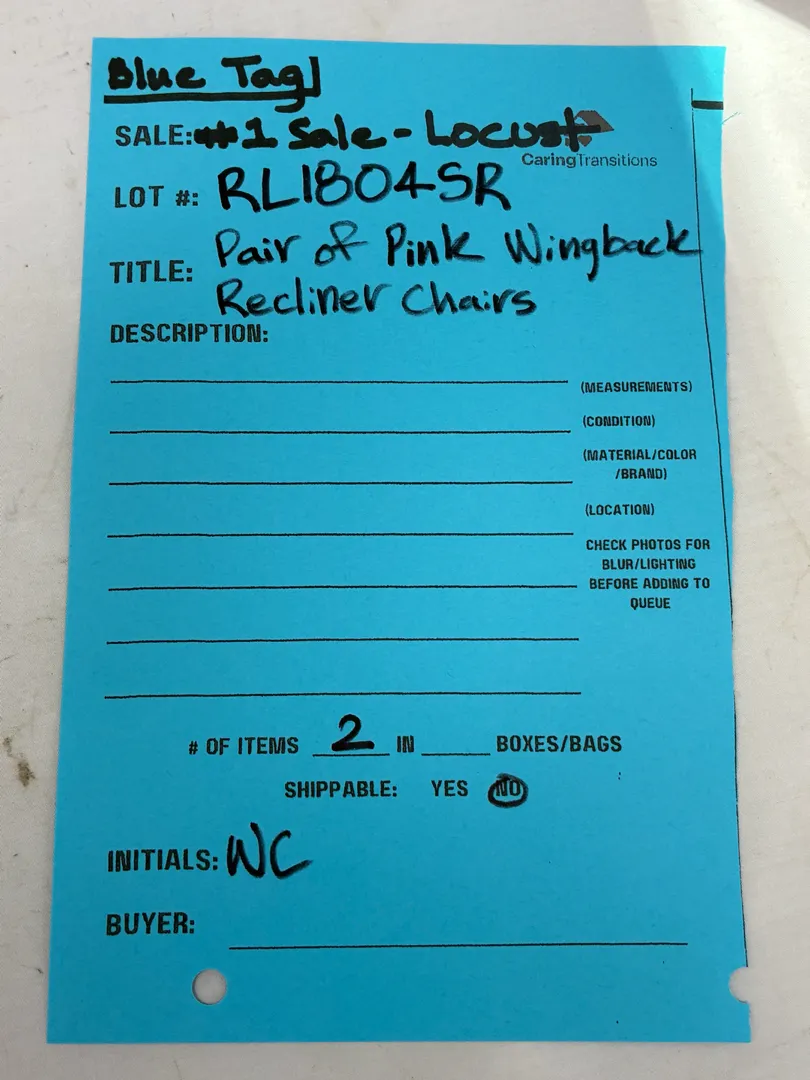 Blue Tag
SALE: #1 Sale - Locust
CaringTransitions
LOT #: RL1804SR
TITLE: Pair of Pink Wingback
Recliner Chairs
DESCRIPTION:
(MEASUREMENTS)
(CONDITION)
(MATERIAL/COLOR
/BRAND)
(LOCATION)
CHECK PHOTOS FOR
BLUR/LIGHTING
BEFORE ADDING TO
QUEUE
# OF ITEMS 2 IN BOXES/BAGS
SHIPPABLE: YES NO
INITIALS: WC
BUYER: